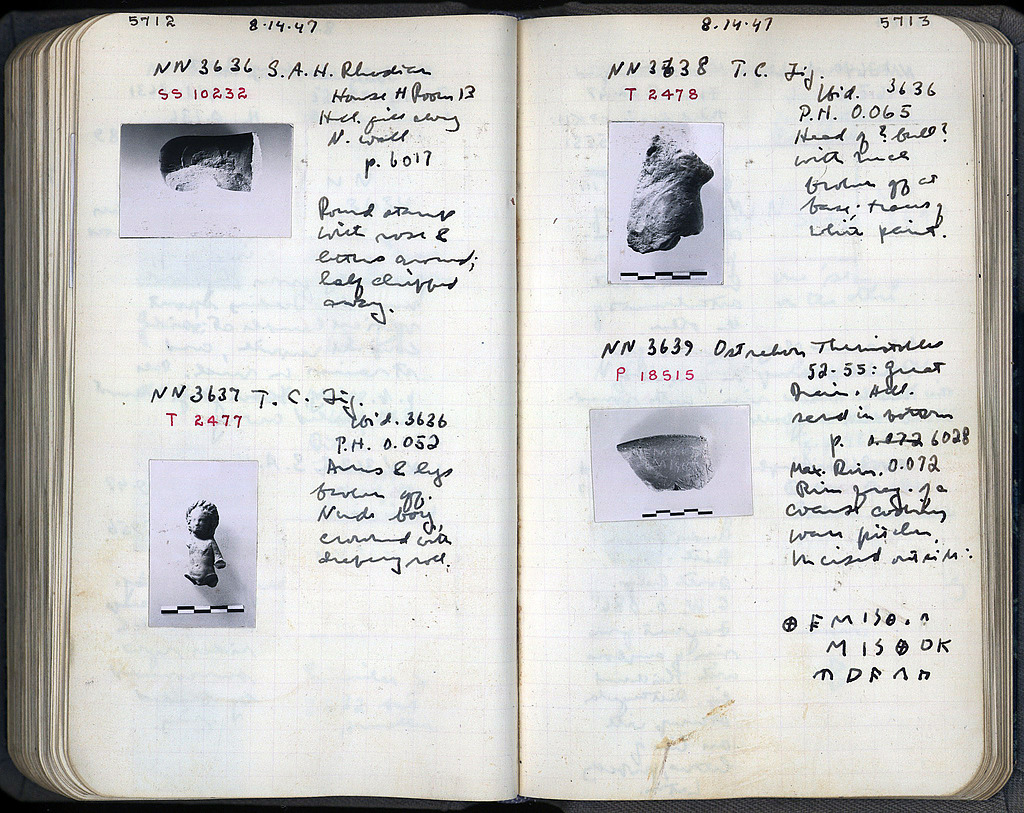 5712
8-14-47
NN 3636 S.A.H. Rhodian
SS 10232
House H Room 13
Hell. fill along
N. wall
p. 6017
Round stamp
with rose &
letters around;
half chipped
away.
NN 3637 T.C. Fig.
T 2477
Ibid. 3636
P.H. 0.052
Arms & legs
broken off.
Nude boy,
crowned with
drapery roll.
8-14-47
5713
NN 3638 T.C. Fig.
T 2478
Ibid. 3636
P.H. 0.065
Head of ? bull?
with neck
broken off at
base: traces of
white paint.
NN 3639 Ostrakon Themistokles
P 18515
52-55: Great
Drain. Hell.
sand in bottom
p. 6028
Max. Dim. 0.072
Rim frag. of a
coarse cooking
ware pitcher.
Incised outside: